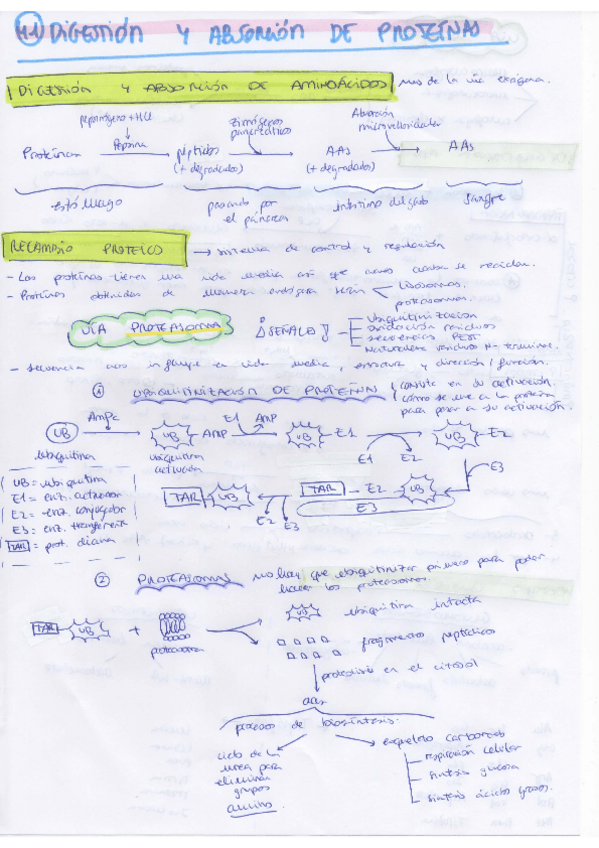 4.1 DIGESTIÓN Y ABSORCIÓN DE PROTEÍNAS
DIGESTIÓN Y ABSORCIÓN DE AMINOÁCIDOS
de la vía exógena.
pepsinógeno + HCl
zimógenos pancreáticos
Absorción microvellosidades
Proteínas
Pepsina
péptidos (+ degradados)
AAs (+ degradados)
AAs
estómago
pasando por el páncreas
intestino delgado
Sangre
RECAMBIO PROTEICO
sistema de control y regulación
- Las proteínas tienen una vida media así que
se reciclan.
- Proteínas obtenidas de manera endógena
lisosomas.
proteasomas.
VÍA PROTEASOMA
¡SEÑALES!
Ubiquitinización
oxidación residuos
secuencias PEST
Naturaleza residuos N-terminal.
- secuencia
influye en vida media, estructura y dirección / función.
1 UBIQUITINIZACIÓN DE PROTEÍNAS
consiste en su activación.
cómo se une a la proteína
para pasar a su activación.
UB
UB
AMP
E1
AMP
UB
E1
E1
E2
UB
E2
ubiquitina
ubiquitina activada
E3
UB = ubiquitina
E1 = enz. activador
E2 = enz. conjugador
E3 = enz. transferente
TAR = prot. diana
TAR
UB
E2
E3
TAR
E2
UB
E3
2 PROTEASOMAS
hay que ubiquitinizar primero para poder
los proteasomas.
TAR
UB
+
proteasoma
UB
ubiquitina intacta
fragmentos peptídicos
en el citosol
procesos de biosíntesis:
ciclo de la
urea para
eliminar
grupos
amino.
esqueleto carbonado
respiración celular
síntesis glucosa
síntesis ácidos grasos.